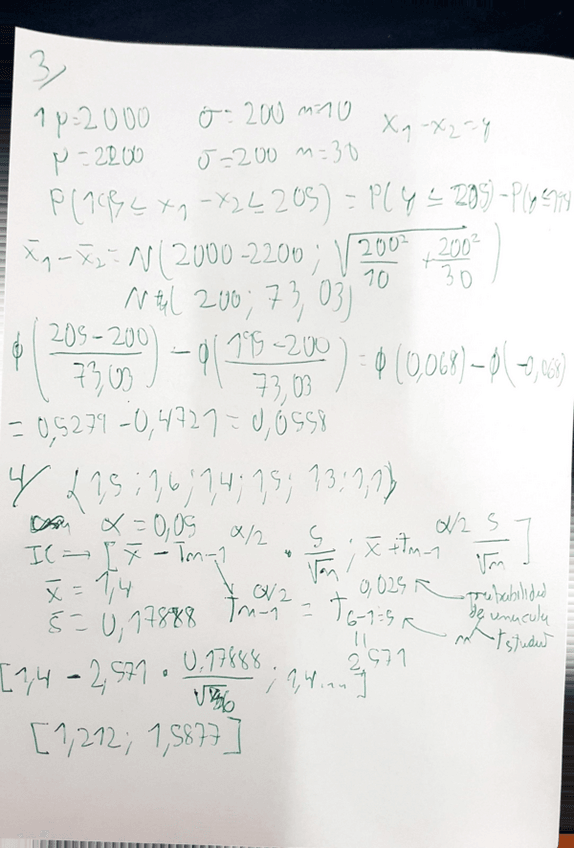 3/
1 μ=2000 σ=200 n=10 x₁-x₂=y
μ=2200 σ=200 n=30
P(195≤x₁-x₂≤205)=P(y≤205)-P(y≤195)
x̄₁-x̄₂=N(2000-2200; √(200²/10+200²/30))
N(200; 73,03)
φ((205-200)/73,03)-φ((195-200)/73,03)=φ(0,068)-φ(-0,068)
=0,5279-0,4721=0,0558
4/ {1,5;1,6;1,4;1,5;1,3;1,1}
α=0,05
IC→[x̄-t̄n-1^α/2·s/√n; x̄+tn-1^α/2 s/√n]
x̄=1,4
s̄=0,17888 tn-1^α/2=t6-1=5^0,025 ← probabilidad
n t student
2,571
[1,4-2,571·0,17888/√6; 1,4...]
[1,212; 1,5877]